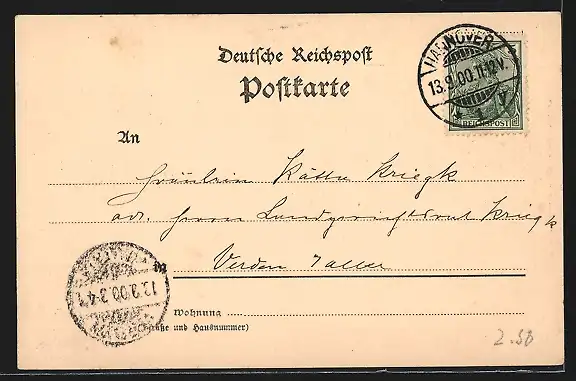 Deutsche Reichspost
Postkarte
HANNOVER
13.9.00.11-12V
REICHSPOST
An
Fräulein Käthe Kriegk
adr. Herrn Landgerichtsrat Kriegk
in Verden Aller
13.9.00.3-4
Wohnung
(Straße und Hausnummer)
2.50